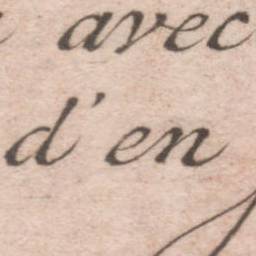 avec
d'en